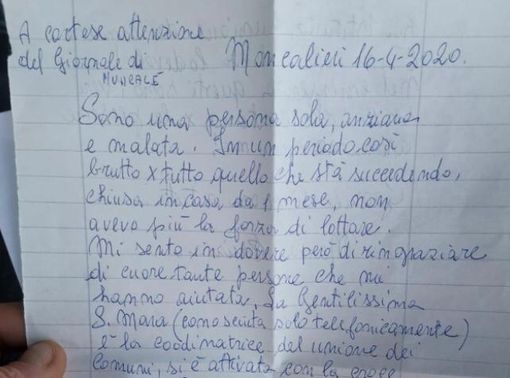 A cortese attenzione
del Giornale di Moncalieri 16-4-2020.
MUNCALÈ
Sono una persona sola, anziana
e malata. In un periodo così
brutto x tutto quello che stà succedendo,
chiusa in casa da 1 mese, non
avevo più la forza di lottare.
Mi sento in dovere però di ringraziare
di cuore tante persone che mi
hanno aiutata, La Gentilissima
S. Mara (conosciuta solo telefonicamente)
è la coodinatrice del unione dei
comuni, si è attivata con la croce